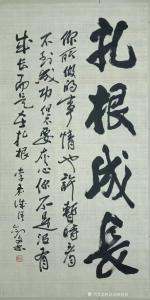 扎根成長
你所做的事情也許暫時看
不到成功但不要灰心你不是沒有
成长而是在扎根